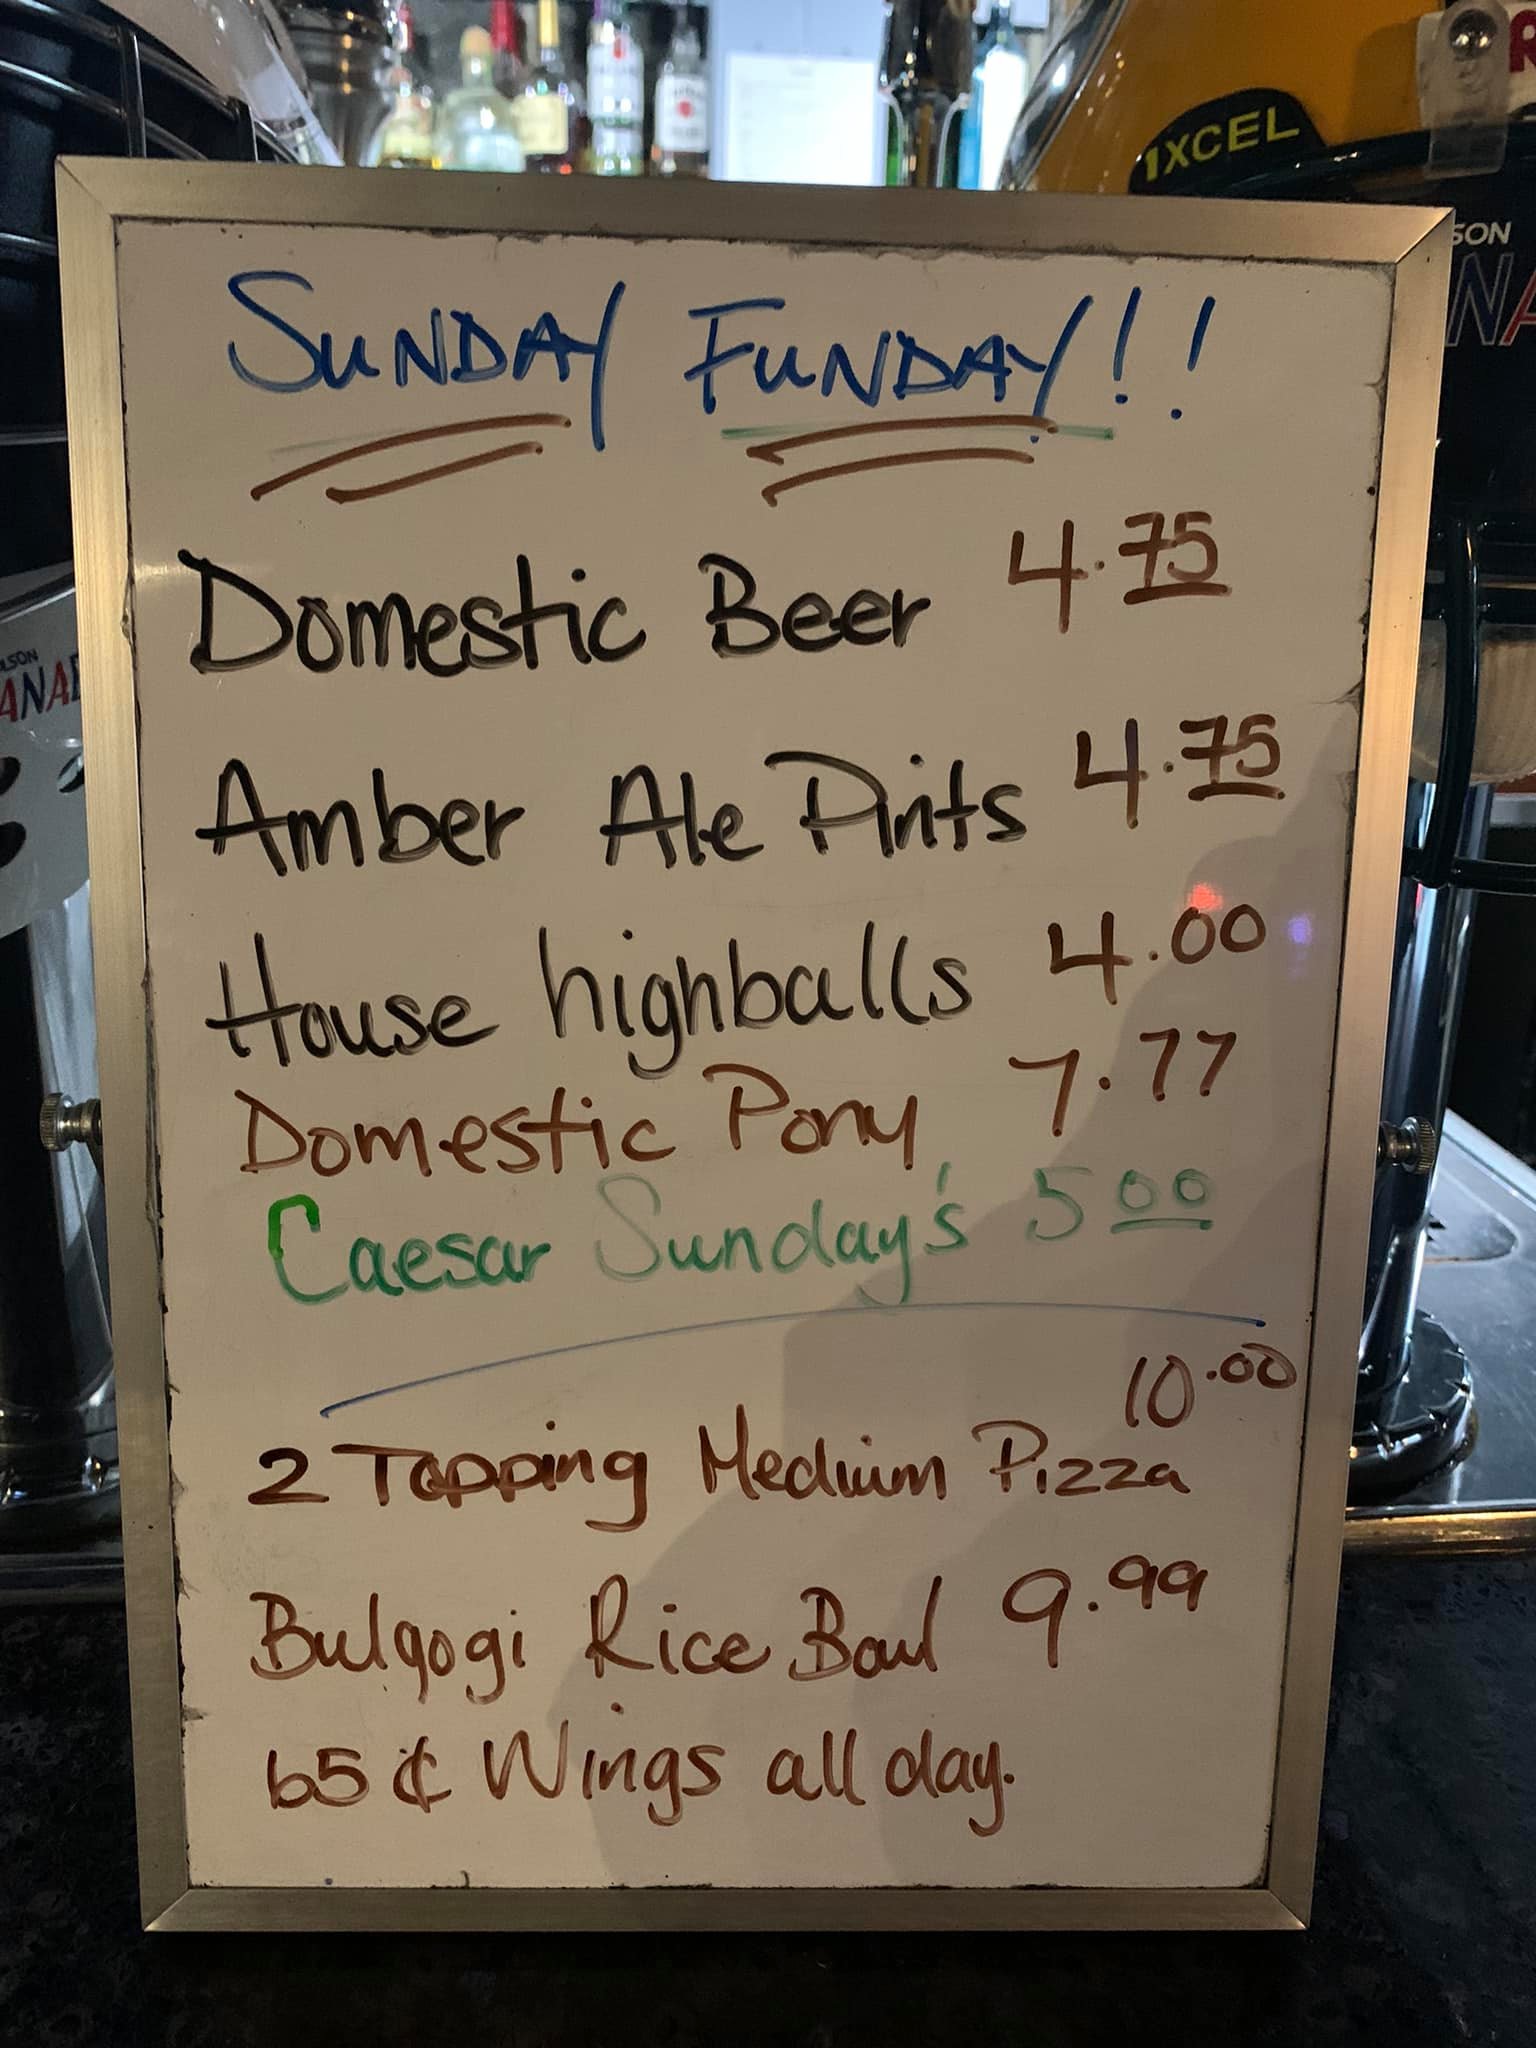 IXCEL
SON
NA
OLSON
ANAD
SUNDAY FUNDAY!!
Domestic Beer 4.75
Amber Ale Pints 4.75
House highballs 4.00
Domestic Pony 7.77
Caesar Sunday's 5 00
10.00
2 Topping Medium Pizza
Bulgogi Rice Bowl 9.99
65¢ Wings all day.